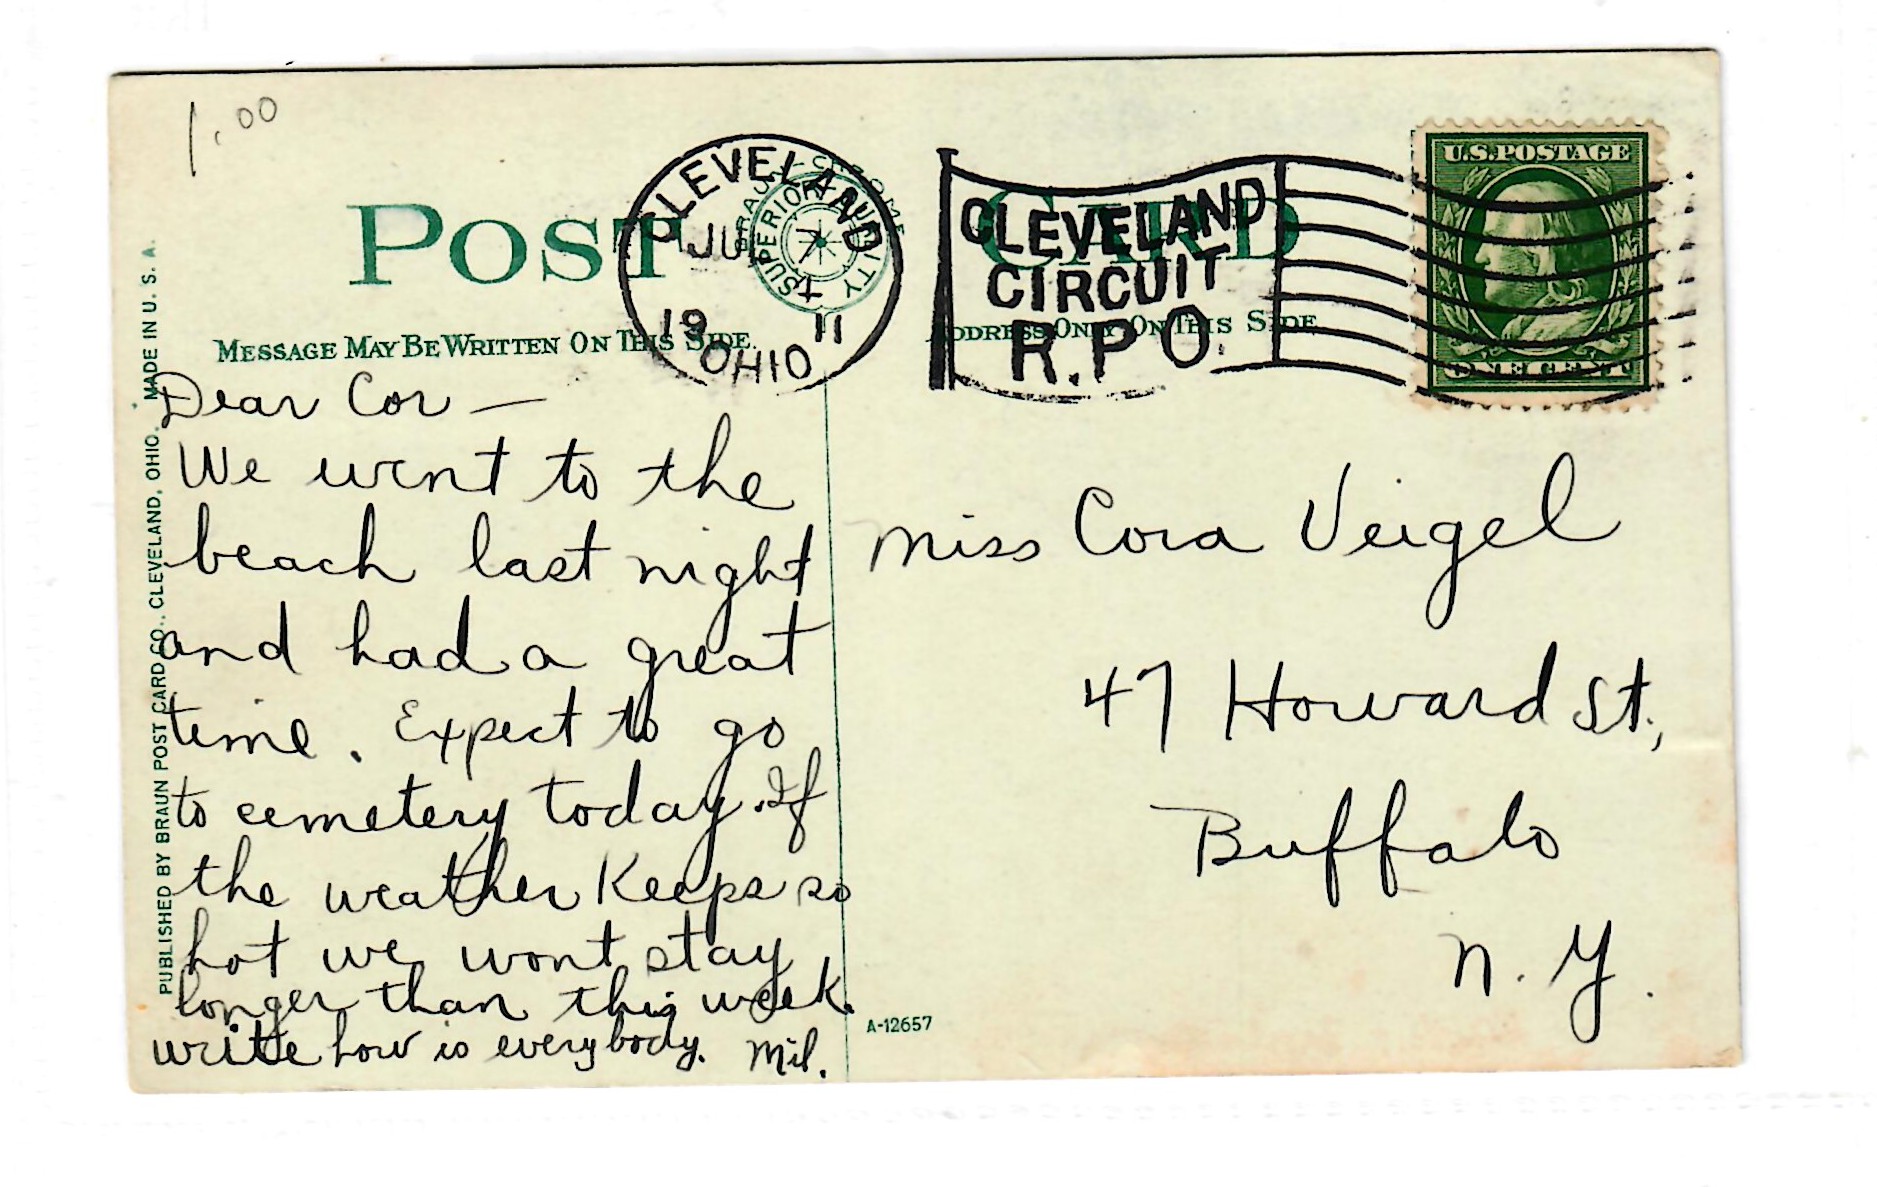 1.00
POST CARD
CLEVELAND
JUL 7
19 11
OHIO
SUPERIOR QUALITY
CLEVELAND
CIRCUIT
R.P.O.
U.S. POSTAGE
ONE CENT
MESSAGE MAY BE WRITTEN ON THIS SIDE.
ADDRESS ONLY ON THIS SIDE
PUBLISHED BY BRAUN POST CARD CO., CLEVELAND, OHIO. MADE IN U. S. A.
Dear Cor —
We went to the
beach last night
and had a great
time. Expect to go
to cemetery today. If
the weather Keeps so
hot we wont stay
longer than this week.
write how is everybody. Mil.
Miss Cora Veigel
47 Howard St.,
Buffalo
N. Y.
A-12657